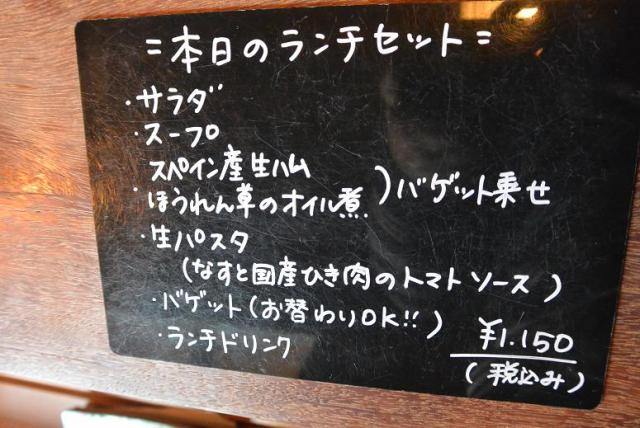 =本日のランチセット=
・サラダ
・スープ
スペイン産生ハム
・ほうれん草のオイル煮 )バゲット乗せ
・生パスタ
(なすと国産ひき肉のトマトソース)
・バゲット(お替わりOK!!)
・ランチドリンク
¥1.150
(税込み)